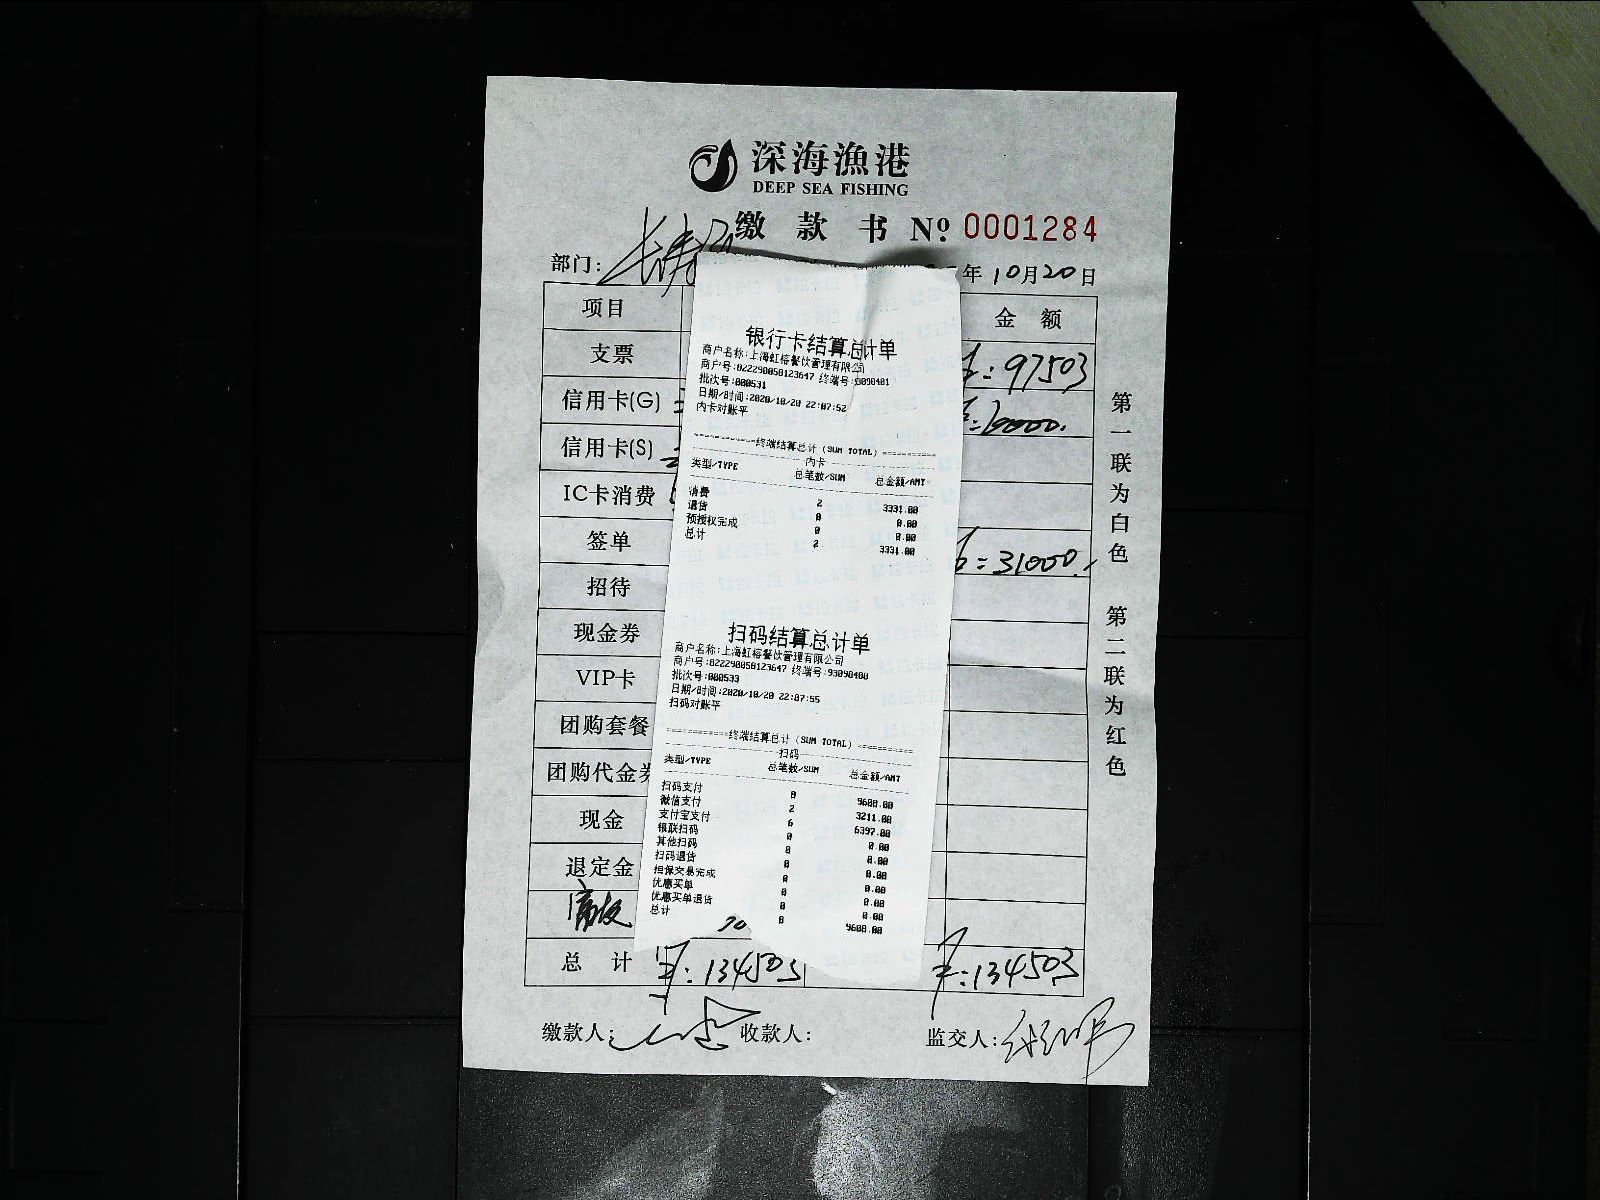 深海漁港
DEEP SEA FISHING
缴 款 书 Nº 0001284
部门:
年10月20日
项目 金 额
支票 97503
信用卡(G)
信用卡(S)
IC卡消费
签单 31000.
招待
现金券
VIP卡
团购套餐
团购代金券
现金
退定金
总 计 134503 134503
缴款人: 收款人: 监交人:
第一联为白色 第二联为红色
银行卡结算总计单
商户名称:上海虹榕餐饮管理有限公司
商户号:822290058123647 终端号:93098401
批次号:000531
日期/时间:2020/10/20 22:07:52
内卡对账平
终端结算总计 (SUM TOTAL)
内卡
类型/TYPE 总笔数/SUM 总金额/AMT
消费 2 3331.00
退货 0 0.00
预授权完成 0 0.00
总计 2 3331.00
扫码结算总计单
商户名称:上海虹榕餐饮管理有限公司
商户号:822290058123647 终端号:93098400
批次号:000533
日期/时间:2020/10/20 22:07:55
扫码对账平
终端结算总计 (SUM TOTAL)
扫码
类型/TYPE 总笔数/SUM 总金额/AMT
扫码支付 8 9608.00
微信支付 2 3211.00
支付宝支付 6 6397.00
银联扫码 0 0.00
其他扫码 0 0.00
扫码退货 0 0.00
担保交易完成 0 0.00
优惠买单 0 0.00
优惠买单退货 0 0.00
总计 8 9608.00